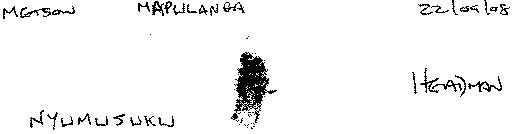 METSON MAPULANGA 22/09/08
HEADMAN
NYUMUSUKU